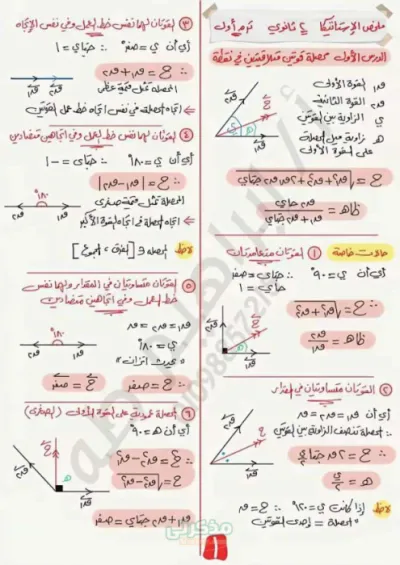 ملخص الإستاتيكا ٢ ثانوي ترم أول
الدرس الأول محصلة قوتين متلاقيتين في نقطة
ق١ القوة الأولى
ق٢ القوة الثانية
ي الزاوية بين القوتين
هـ زاوية ميل المحصلة على القوة الأولى
ح = √ق١² + ق٢² + ٢ق١ق٢ جتاي
ظاهـ = ق٢ جاي / ق١ + ق٢ جتاي
حالات خاصة
١ القوتان متعامدتان
أي أن ي = ٩٠° ∴ جتاي = صفر
جاي = ١
∴ ح = √ق١² + ق٢²
ظاهـ = ق٢ / ق١
٢ القوتان متساويتان في المقدار
أي أن ق١ = ق٢ = ق
∴ المحصلة تنصف الزاوية بين القوتين
∴ ح = ٢ق جتا ي/٢
هـ = ي/٢
لاحظ إذا كانت ي = ١٢٠° ∴ ح = ق
المحصلة = إحدى القوتين
٣ القوتان لهما نفس خط العمل وفي نفس الإتجاه
أي أن ي = صفر° ∴ جتاي = ١
∴ ح = ق١ + ق٢
المحصلة تمثل قيمة عظمى
اتجاه المحصلة في نفس اتجاه خط عمل القوتين
٤ القوتان لهما نفس خط العمل وفي اتجاهين متضادين
أي أن ي = ١٨٠° ∴ جتاي = -١
∴ ح = |ق١ - ق٢|
المحصلة تمثل قيمة صغرى
١٨٠°
اتجاه المحصلة في اتجاه القوة الأكبر
لاحظ المحصلة ∈ [الفرق ، المجموع]
٥ القوتان متساويتان في المقدار ولهما نفس
خط العمل وفي اتجاهين متضادين
ق١ = ق٢ = ق
ي = ١٨٠°
١٨٠°
"يحدث اتزان"
∴ ح = صفر ∴ ح = صفر
٦ المحصلة عمودية على القوة الأولى (الصغرى)
أي أن هـ = ٩٠°
∴ ح = ق٢² - ق١²
ح = √ق٢² - ق١²
ق١ + ق٢ جتاي = صفر
مذكرتي
١